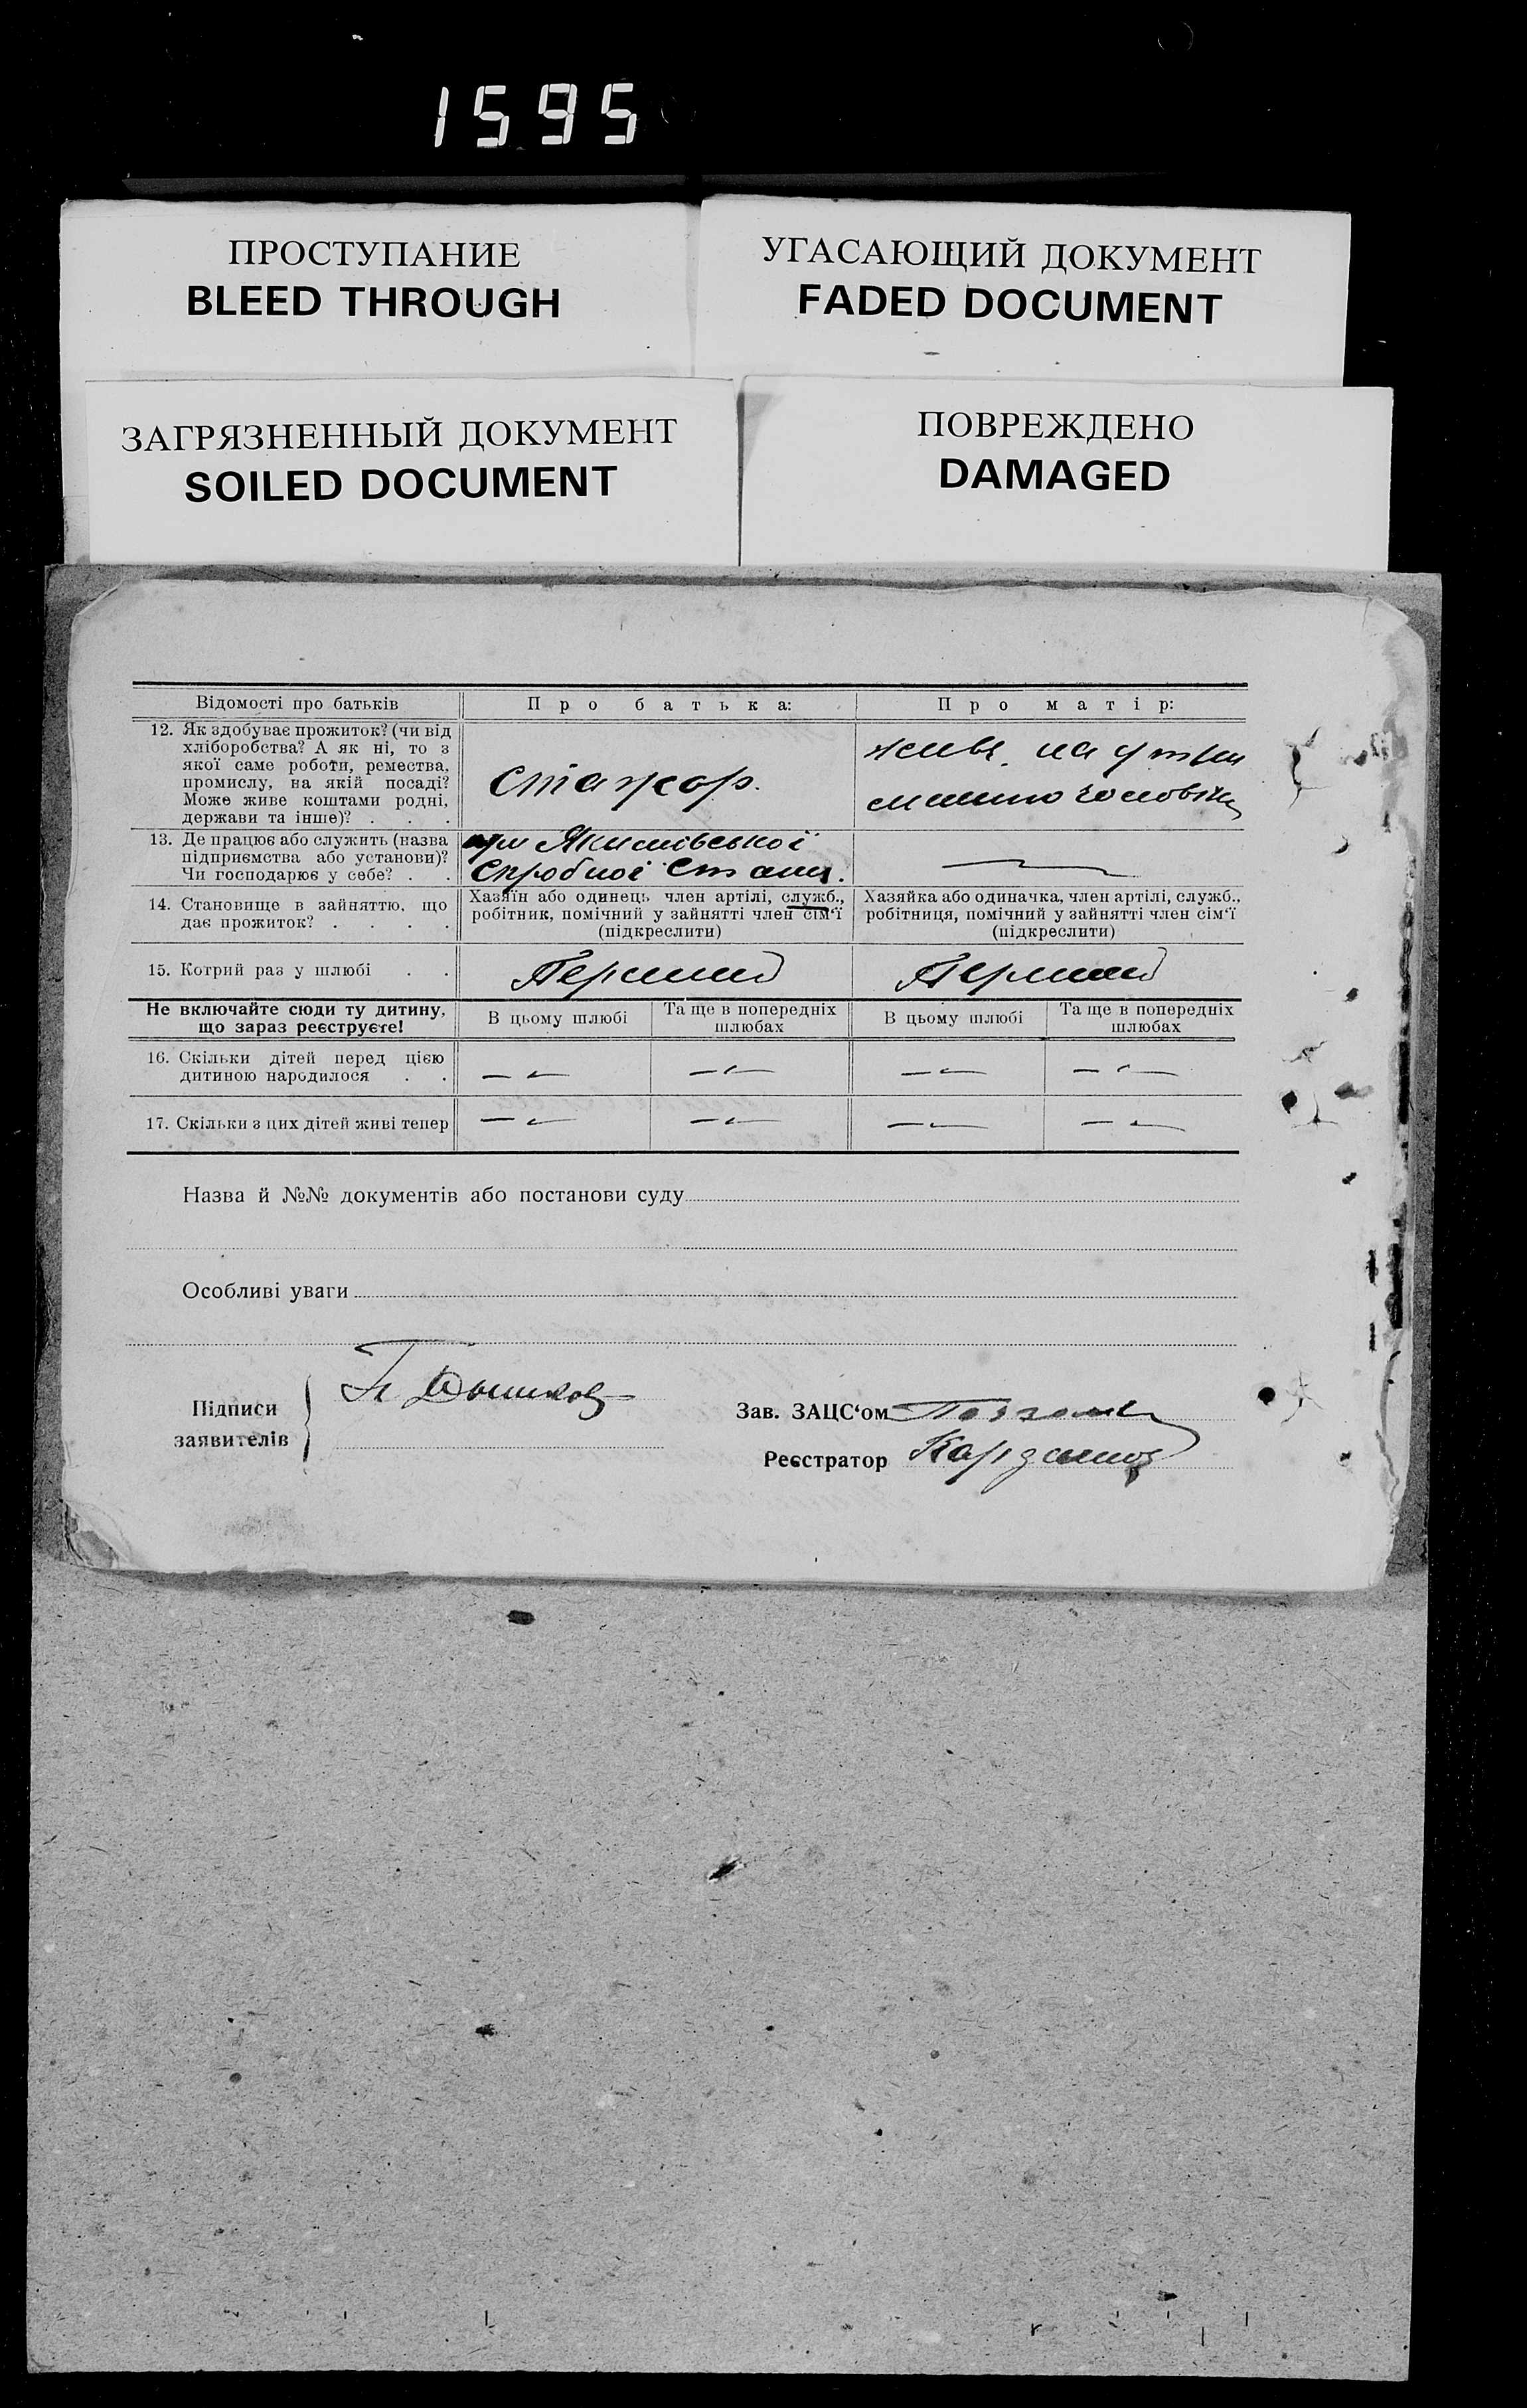 1595
ПРОСТУПАНИЕ
BLEED THROUGH
УГАСАЮЩИЙ ДОКУМЕНТ
FADED DOCUMENT
ЗАГРЯЗНЕННЫЙ ДОКУМЕНТ
SOILED DOCUMENT
ПОВРЕЖДЕНО
DAMAGED
Відомості про батьків
Про батька:
Про матір:
12. Як здобуває прожиток? (чи від
хліборобства? А як ні, то з
якої саме роботи, ремества,
промислу, на якій посаді?
Може живе коштами родні,
держави та інше)? . . .
стажор.
живе на утри
манню чоловіка
13. Де працює або служить (назва
підприємства або установи)?
Чи господарює у себе? . .
при Якимівської
спробної стан.
14. Становище в зайняттю, що
дає прожиток? . . . .
Хазяїн або одинець член артілі, служб.,
робітник, помічний у зайнятті член сім'ї
(підкреслити)
Хазяйка або одиначка, член артілі, служб.,
робітниця, помічний у зайнятті член сім'ї
(підкреслити)
15. Котрий раз у шлюбі . .
Перший
Перший
Не включайте сюди ту дитину,
що зараз реєструєте!
В цьому шлюбі
Та ще в попередніх
шлюбах
В цьому шлюбі
Та ще в попередніх
шлюбах
16. Скільки дітей перед цією
дитиною народилося . .
17. Скільки з цих дітей живі тепер
Назва й №№ документів або постанови суду
Особливі уваги
Підписи
заявителів
Зав. ЗАЦС'ом
Реєстратор